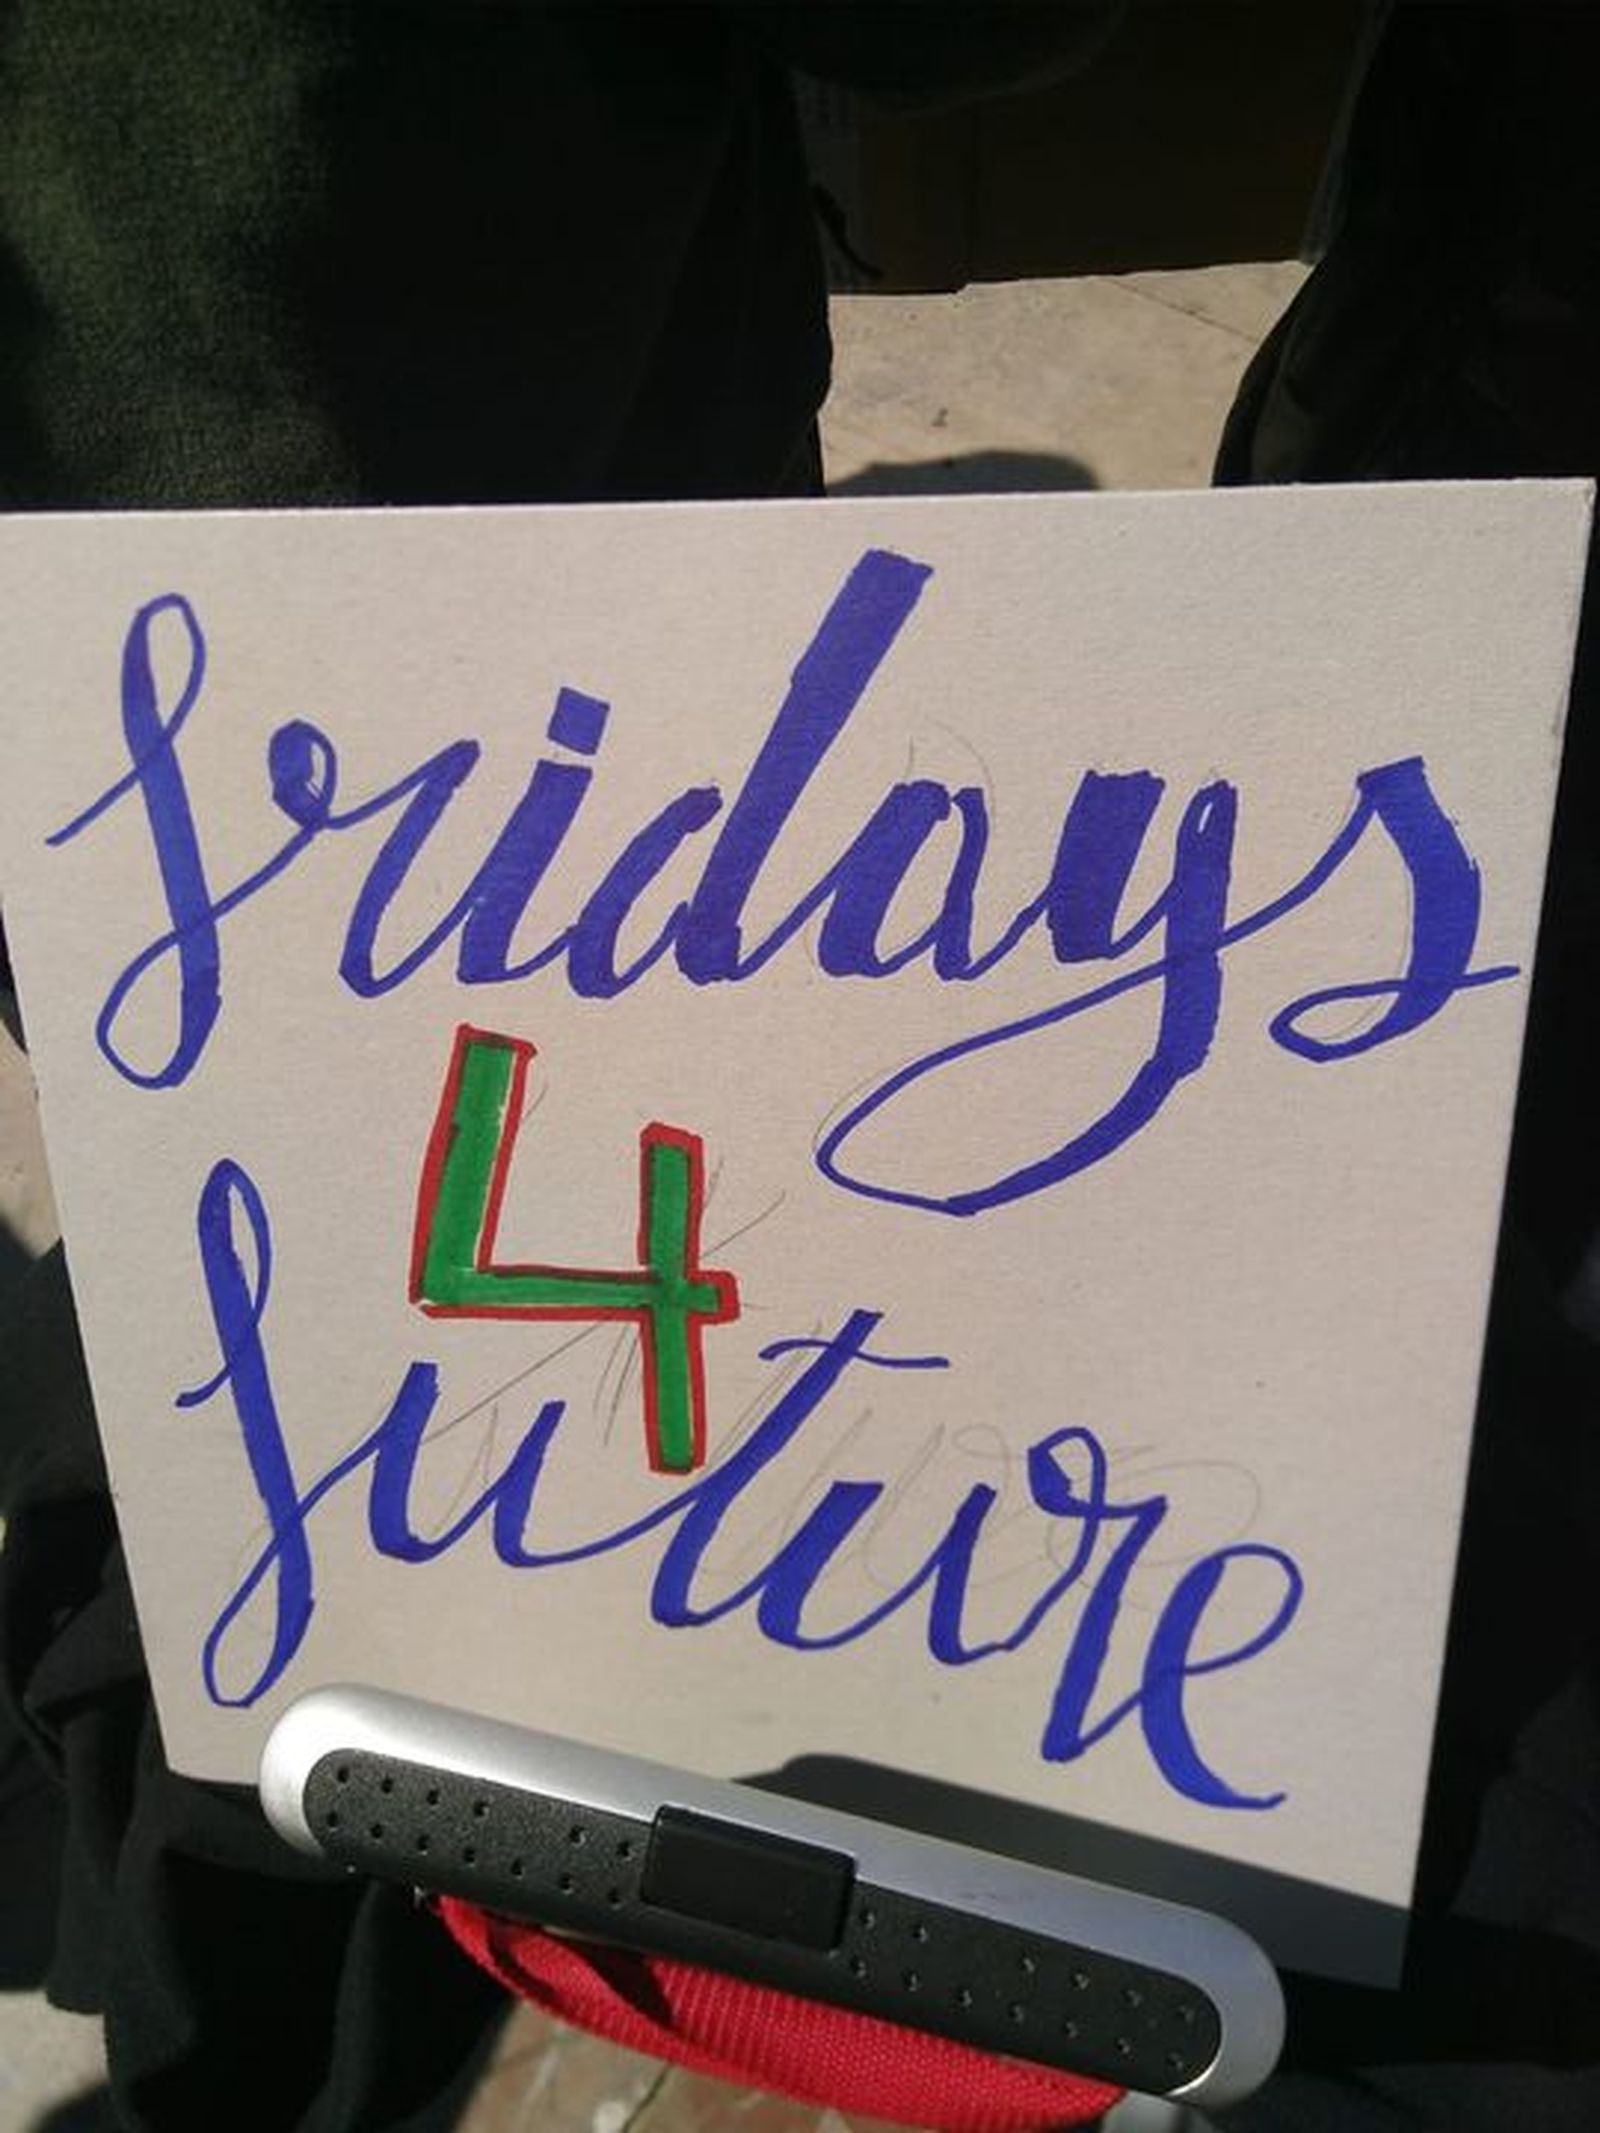 fridays
4
future